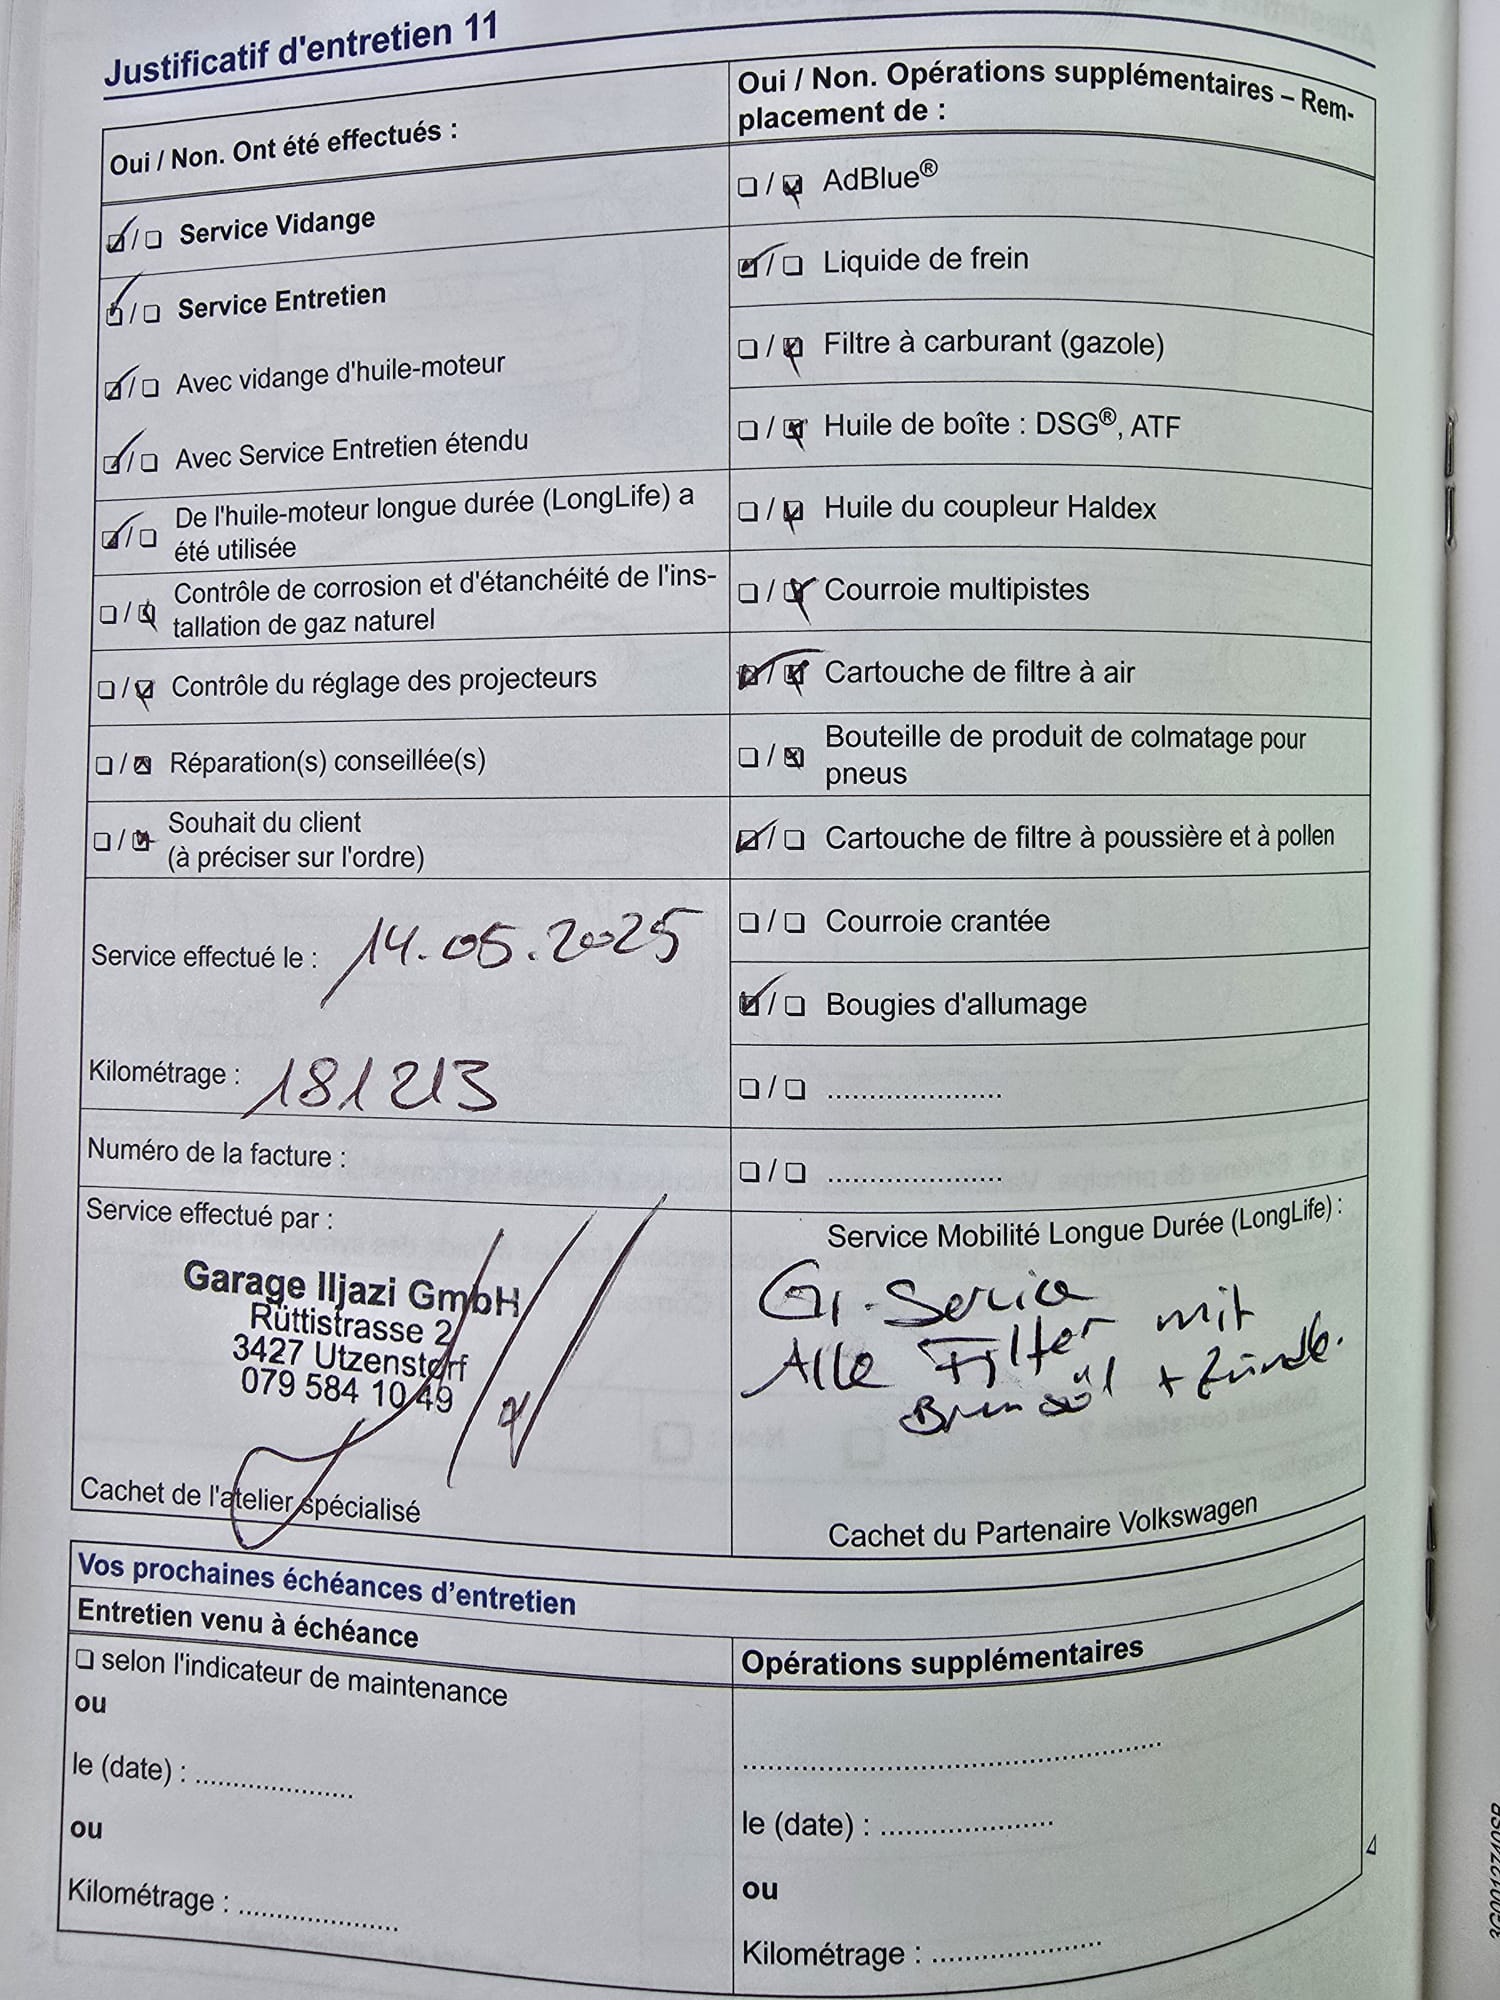 Justificatif d'entretien 11
Oui / Non. Ont été effectués :
☑ / ☐ Service Vidange
☑ / ☐ Service Entretien
☑ / ☐ Avec vidange d'huile-moteur
☑ / ☐ Avec Service Entretien étendu
☑ / ☐ De l'huile-moteur longue durée (LongLife) a
été utilisée
☐ / ☑ Contrôle de corrosion et d'étanchéité de l'ins-
tallation de gaz naturel
☐ / ☑ Contrôle du réglage des projecteurs
☐ / ☑ Réparation(s) conseillée(s)
☐ / ☑ Souhait du client
(à préciser sur l'ordre)
Service effectué le : 14.05.2025
Kilométrage : 181213
Numéro de la facture :
Service effectué par :
Garage Iljazi GmbH
Rüttistrasse 2
3427 Utzenstorf
079 584 10 49
Cachet de l'atelier spécialisé
Oui / Non. Opérations supplémentaires – Rem-
placement de :
☐ / ☑ AdBlue®
☑ / ☐ Liquide de frein
☐ / ☑ Filtre à carburant (gazole)
☐ / ☑ Huile de boîte : DSG®, ATF
☐ / ☑ Huile du coupleur Haldex
☐ / ☑ Courroie multipistes
☑ / ☑ Cartouche de filtre à air
☐ / ☑ Bouteille de produit de colmatage pour
pneus
☑ / ☐ Cartouche de filtre à poussière et à pollen
☐ / ☐ Courroie crantée
☑ / ☐ Bougies d'allumage
☐ / ☐ ......................
☐ / ☐ ......................
Service Mobilité Longue Durée (LongLife) :
Gr. Service
Alle Filter mit
Bremsöl + Zündk.
Cachet du Partenaire Volkswagen
Vos prochaines échéances d'entretien
Entretien venu à échéance
☐ selon l'indicateur de maintenance
ou
le (date) : ....................
ou
Kilométrage : ....................
Opérations supplémentaires
......................................................
le (date) : ......................
ou
Kilométrage : ......................
3G0012740SR